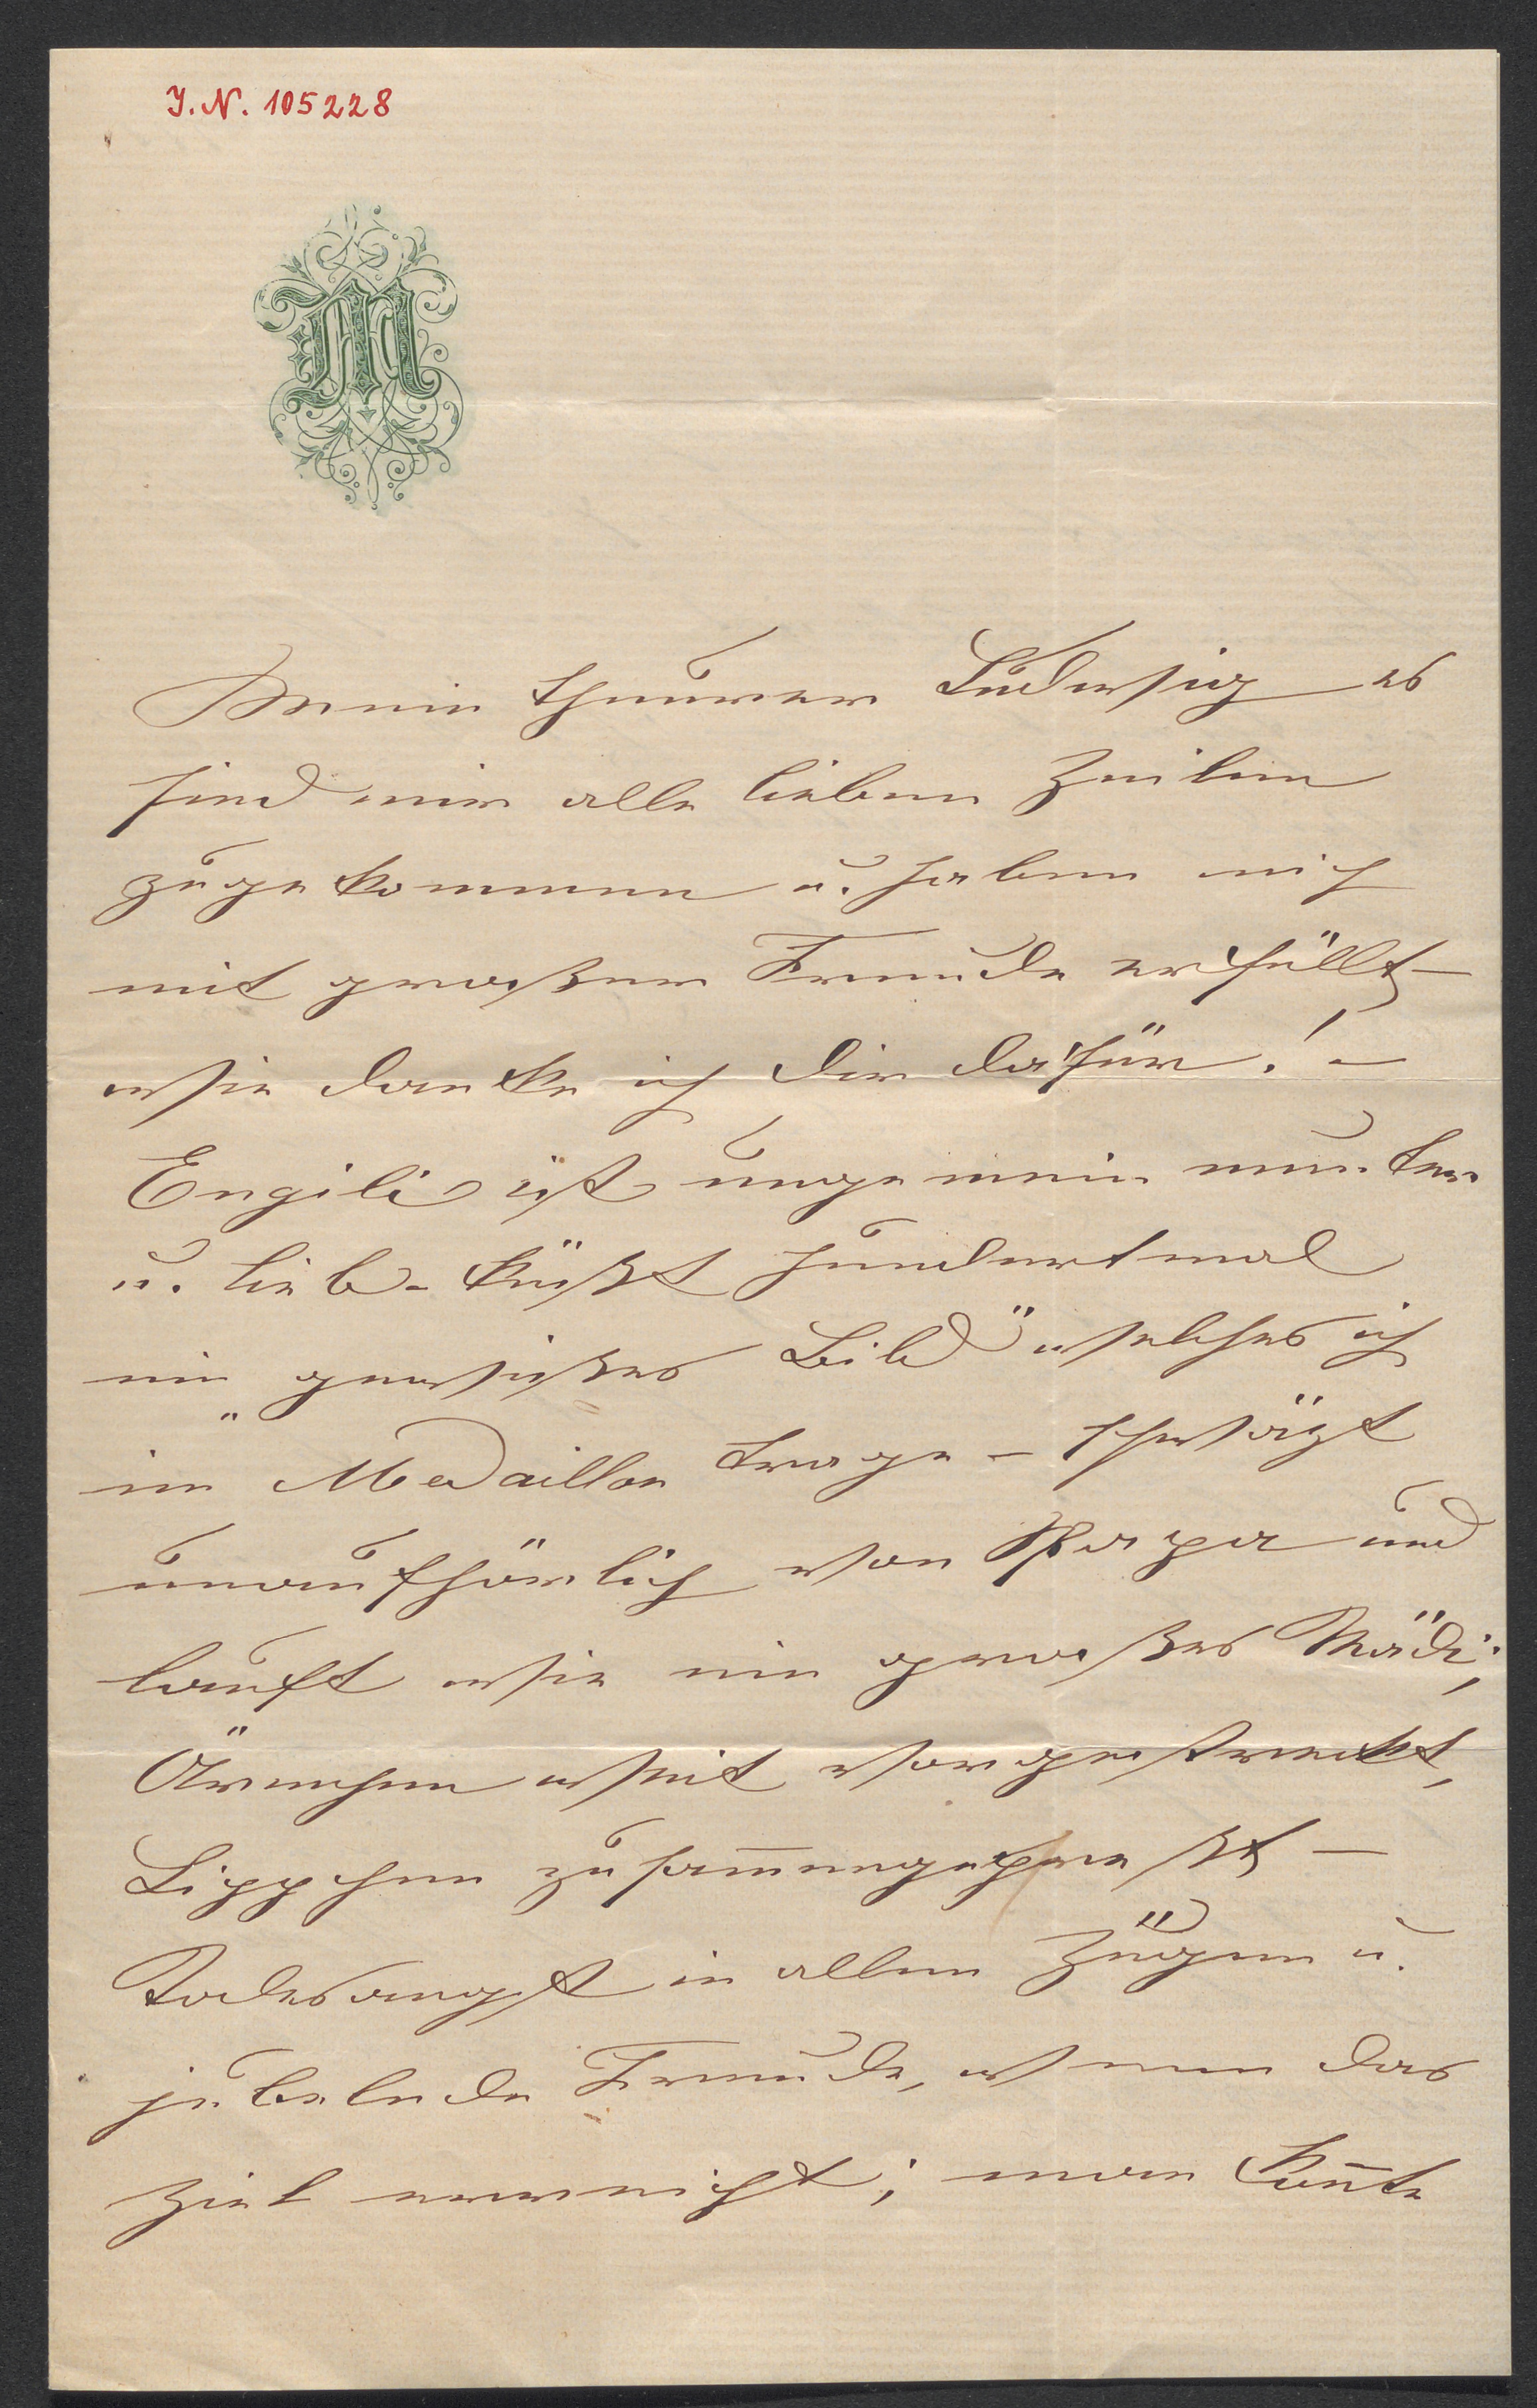 J. N. 105228
M
Mein theurer Ludwig es
sind mir alle lieben Zeilen
zugekommen u. haben mich
mit großer Freude erfüllt –
wie danke ich Dir dafür! –
Engili ist ungemein munter
u. lieb – küßt hundertmal
ein „gewißes Bild" welches ich
im Medaillon trage – schwäzt
unaufhörlich von Papa und
lauft wie ein großes Mädi;
Ärmchen weit vorgestreckt,
Lippchen zusam̅engepreßt –
Todesangst in allen Zügen u.
jubelnde Freude, wenn das
Ziel erreicht; man kon̅te